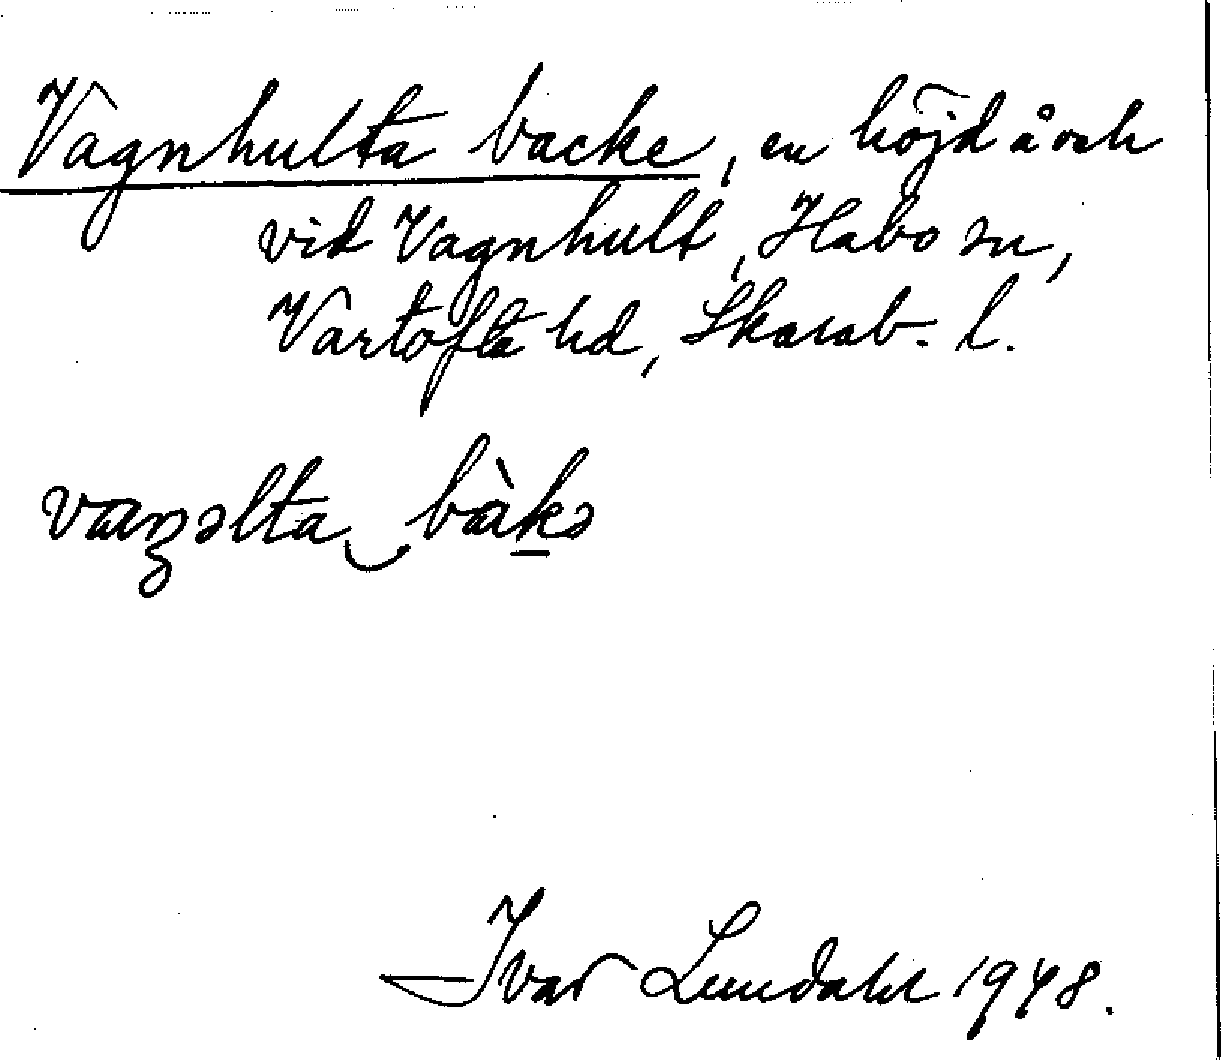 Vagnhulta backe, en höjd å och
vid Vagnhult, Habo sn,
Vartofta hd, Skarab. l.
vaŋəlta‿bàkə
Ivar Lundahl 1948.